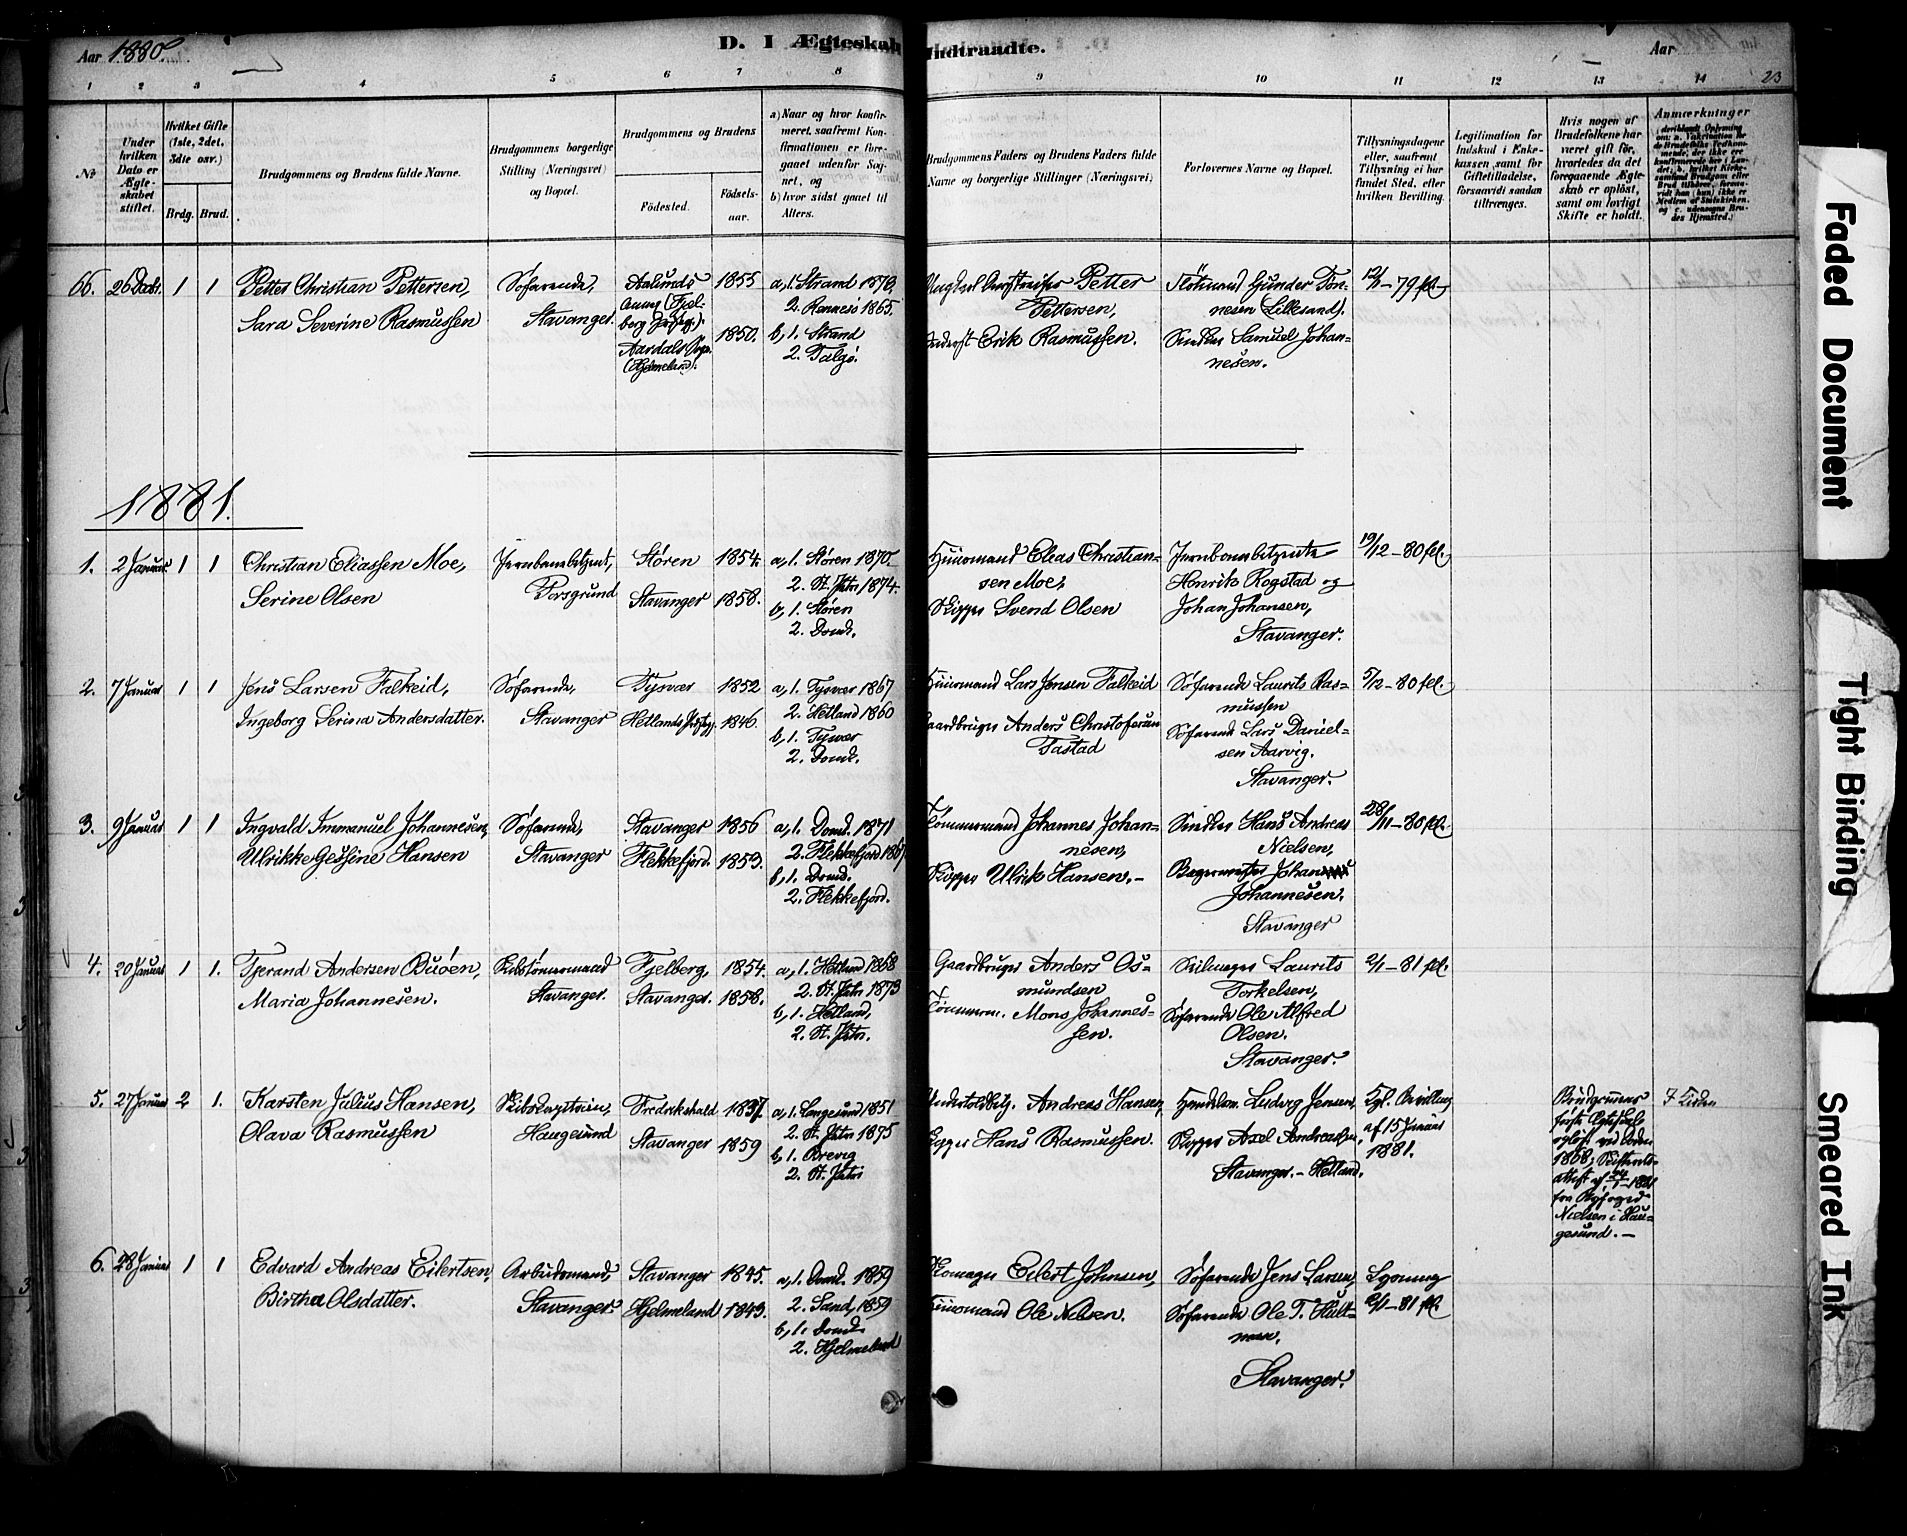 Aar 1880.
D. I Ægteskab
Indtraadte.
Aar
1 2 3 4 5 6 7 8 9 10 11 12 13 14 23
No
Under hvilken Dato er Ægteskabet stiftet.
Hvilket Gifte (1ste, 2det, 3die osv.)
Brdg. Brud.
Brudgommens og Brudens fulde Navne.
Brudgommens borgerlige Stilling (Næringsvei) og Bopæl.
Brudgommens og Brudens
Födested.
Födselsaar.
a) Naar og hvor konfirmeret, saafremt Konfirmationen er foregaaet udenför Sognet, og
b) hvor sidst gaaet til Alters.
Brudgommens Faders og Brudens Faders fulde Navne og borgerlige Stillinger (Næringsvei)
Forlovernes Navne og Bopæl.
Tillysningsdagene eller, saafremt Tillysning ei har fundet Sted, efter hvilken Bevilling.
Legitimation for Indskud i Enkekassen, samt for Giftetilladelse, forsaavidt saadan tiltrænges.
Hvis nogen af Brudefolkene har været gift för, hvorledes da det foregaaende Ægteskab er oplöst, samt om lovligt Skifte er holdt.
Anmærkninger
66. 26 Decbr. 1 1 Petter Christian Pettersen,
Sara Severine Rasmussen
Søfarende,
Stavanger.
1855
Aardals Sogn
(Hjelmeland).
1850.
a, 1. Strand 1870.
2. Rennesö 1865.
b, 1. Strand
2. Talgö.
Petter
Pettersen,
Erik Rasmussen.
Flötmand Gunder Tönnesen
(Lillesand).
Snedker Samuel Johannesen.
12/1-79 fl.
1881.
1. 2 Januar 1 1 Christian Eliassen Moe,
Serine Olsen
Jernbanebetjent,
Porsgrund
Støren 1854.
Stavanger 1858.
a, 1. Støren 1870.
2. St. Petri 1874.
b, 1. Støren
2. Domk.
Huusmand Elias Christiansen
Moe,
Skipper Svend Olsen
Jernbanebetjente
Henrik Rogstad og
Johan Johansen,
Stavanger.
19/12-80 fl.
2. 7 Januar 1 1 Jens Larsen Falkeid,
Ingeborg Serina Andersdatter.
Søfarende,
Stavanger
Tysvær 1852
Hetlands Prstgj. 1846.
a, 1. Tysvær 1867
2. Hetland 1860
b, 1. Tysvær
2. Domk.
Huusmand Lars Jensen Falkeid
Gaardbruger Anders Christofersen
Tastad
Søfarende Laurits Rasmussen
Søfarende Lars Danielsen
Aarvig.
Stavanger.
5/12-80 fl.
3. 9 Januar 1 1 Ingvald Immanuel Johannesen,
Ulrikke Gessine Hansen
Søfarende,
Stavanger
Stavanger 1856
Flekkefjord. 1853.
a, 1. Domk. 1871
2. Flekkefjord 1867
b, 1. Domk.
2. Flekkefjord.
Tømmermand Johannes Johannesen,
Skipper Ulrik Hansen.-
Snedker Hans Andreas
Nielsen,
Bagermester Johan
Johannesen.
Stavanger
28/11-80 fl.
4. 20 Januar 1 1. Tjerand Andersen Buøen,
Maria Johannesen.
Skibstømmermand
Stavanger.
Fjelberg, 1854.
Stavanger. 1858.
a, 1. Hetland 1868
2. St. Petri 1873
b, 1. Hetland,
2. St. Petri.
Gaardbruger Anders Osmundsen
Tømmerm. Mons Johannessen.
Seilmager Laurits
Torkelsen,
Søfarende Ole Alfred
Olsen.
Stavanger.
2/1-81 fl.
5. 27 Januar 2 1. Karsten Julius Hansen,
Olava Rasmussen
Skibskaptein,
Haugesund
Fredrikshald 1837.
Stavanger 1859
a, 1. Langesund 1851
2. St. Petri 1875
b, 1. Brevig
2. St. Petri
Undertoldbetj. Andreas Hansen,
Skipper Hans Rasmussen.
Handelsm. Ludvig Jensen,
Skipper Axel Andreassen,
Stavanger.- Hetland.
Kgl. Bevilling
af 15 Januar
1881.
Brudgommens
første Ægteskab
opløst ved Døden
1868; Skifteretsattest
af 24/1-1881
fra Byfoged
Nielsen i Haugesund.-
I Kirken
6. 28 Januar 1 1 Edvard Andreas Eilertsen,
Birtha Olsdatter.
Arbeidsmand,
Stavanger.
Stavanger 1845.
Hjelmeland 1843.
a, 1. Domk. 1859
2. Sand, 1859
b, 1. Domk.
2. Hjelmeland
Skomager Eilert Johnsen,
Huusmand Ole Nelsen.
Søfarende Jens Larsen,
Søfarende Ole T. Hultman,
Stavanger.
Lysning
2/1-81 fl.
Faded Document
Tight Binding
Smeared Ink